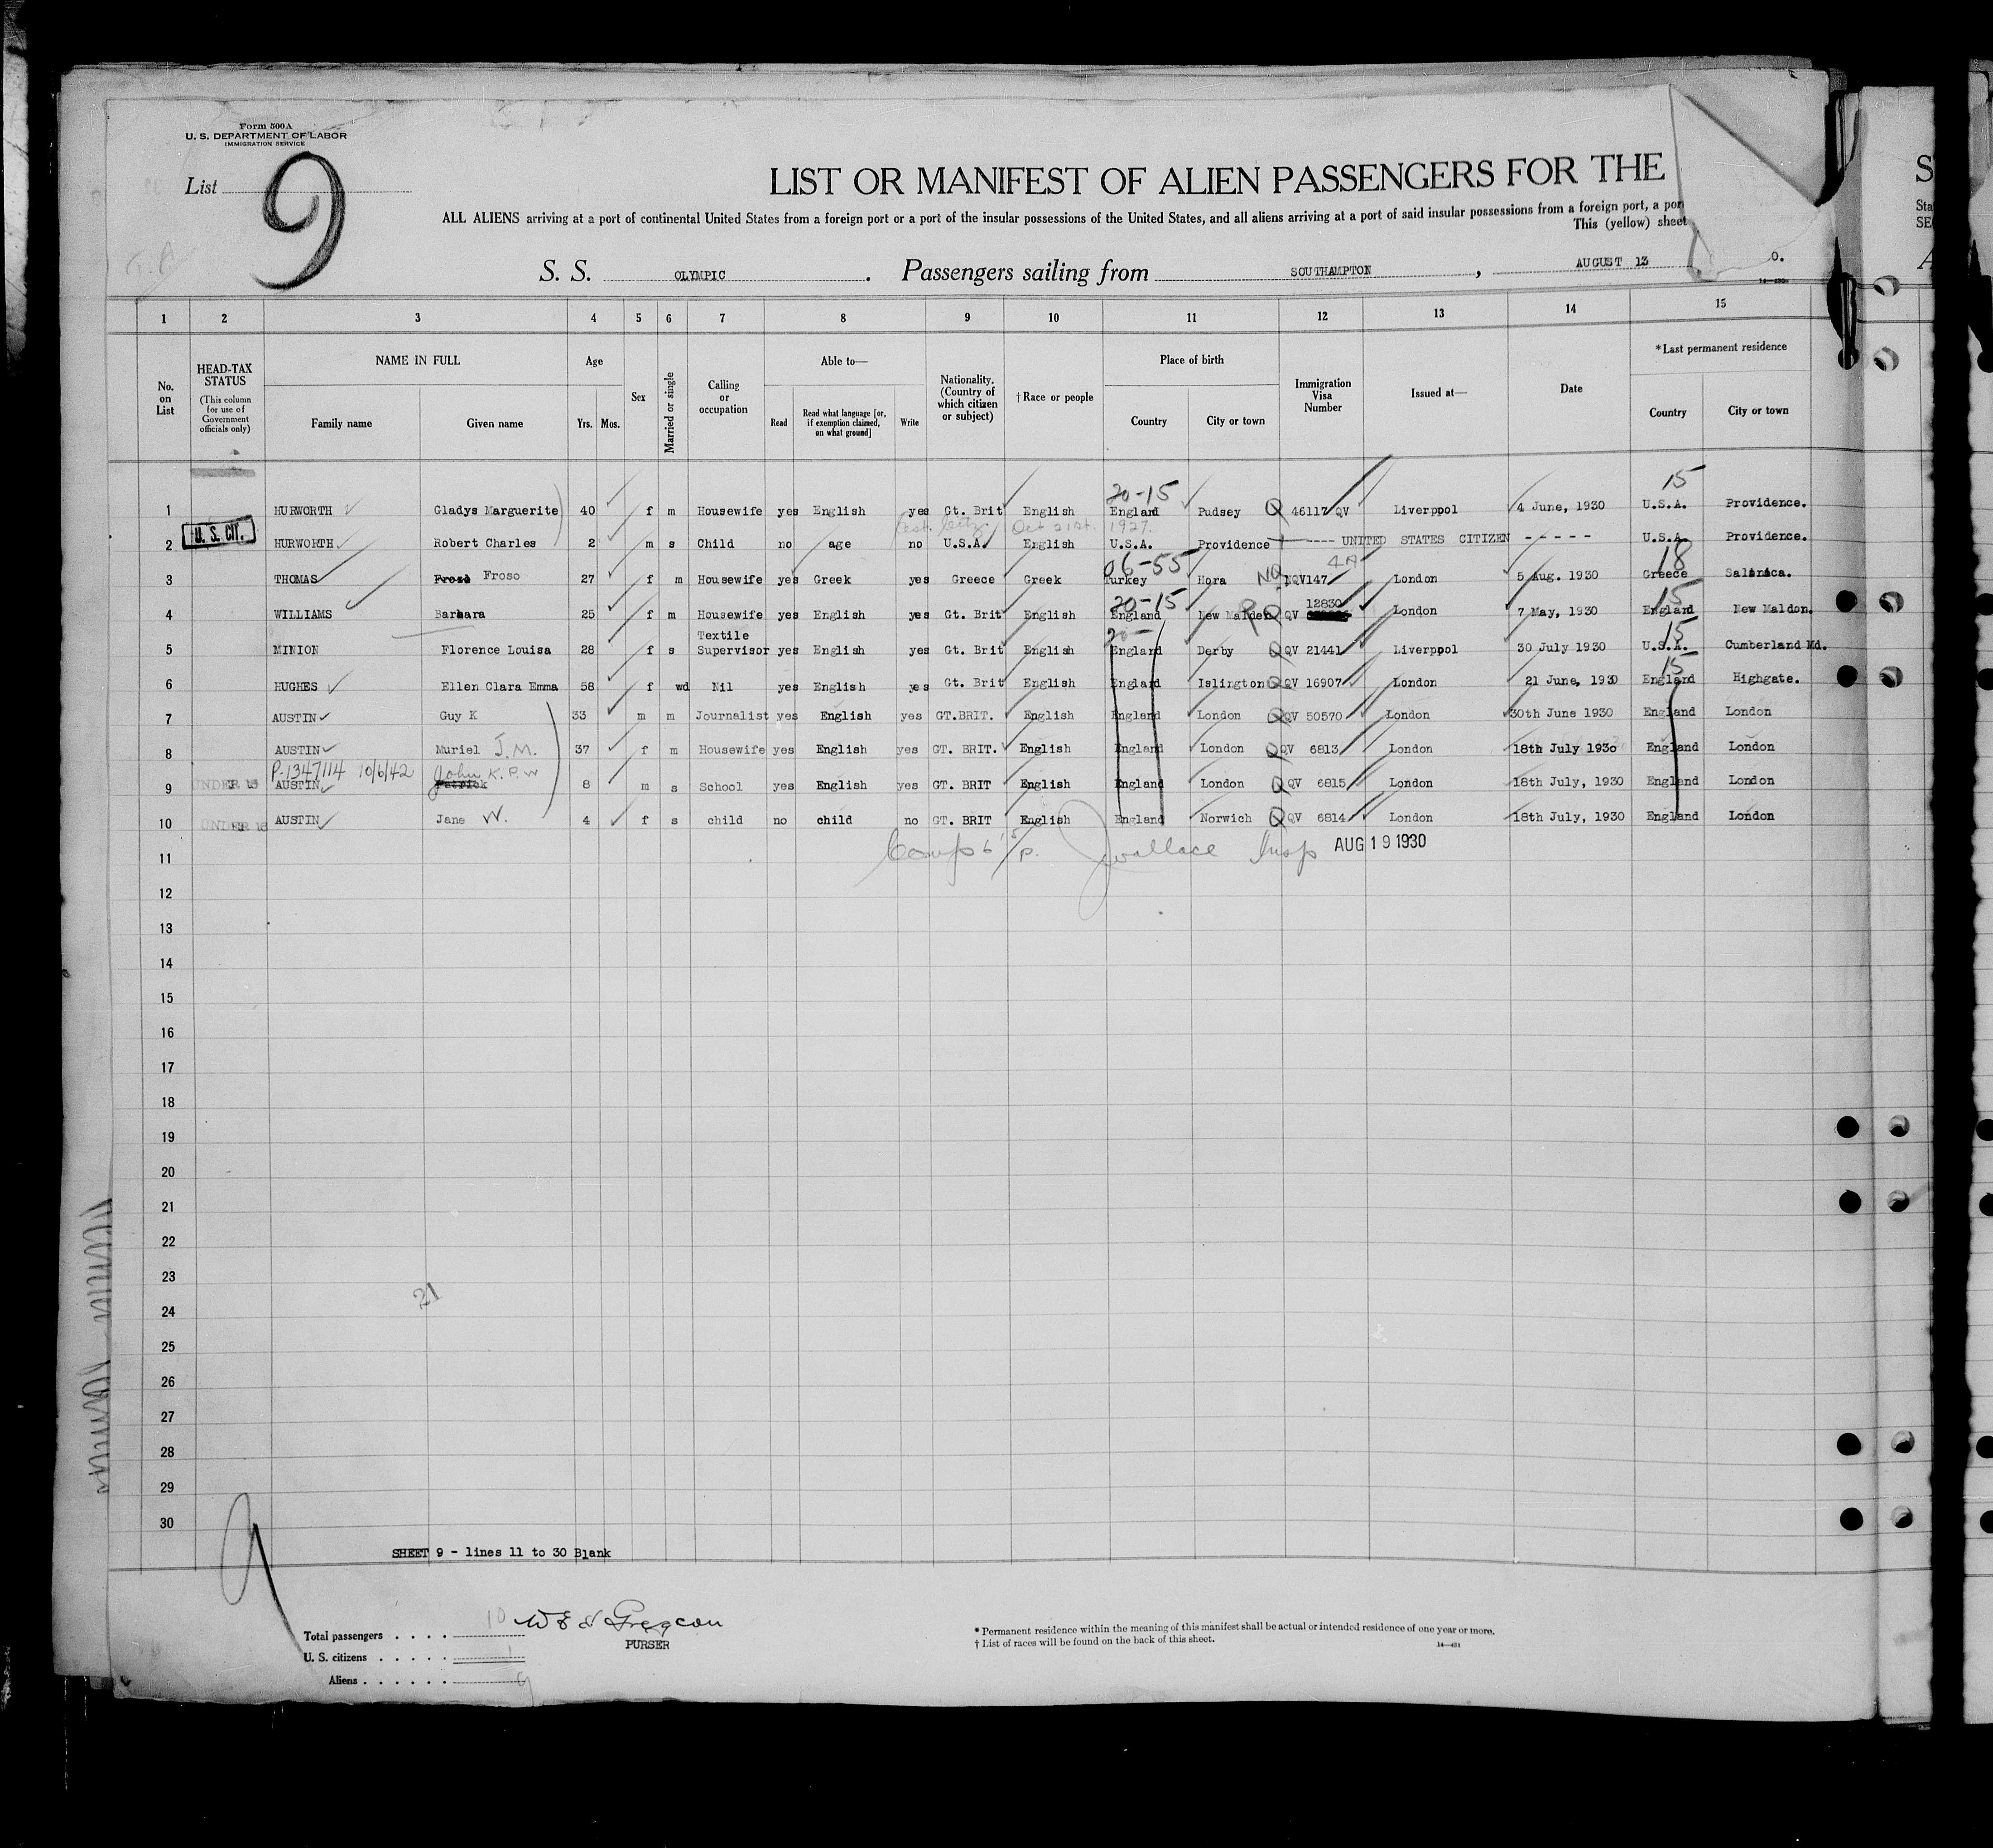 Form 500A
U. S. DEPARTMENT OF LABOR
IMMIGRATION SERVICE
List 9
LIST OR MANIFEST OF ALIEN PASSENGERS FOR THE
ALL ALIENS arriving at a port of continental United States from a foreign port or a port of the insular possessions of the United States, and all aliens arriving at a port of said insular possessions from a foreign port, a por
This (yellow) sheet
S. S. OLYMPIC . Passengers sailing from SOUTHAMPTON , AUGUST 13 0.
1 2 3 4 5 6 7 8 9 10 11 12 13 14 15
No. on List
HEAD-TAX STATUS (This column for use of Government officials only)
NAME IN FULL
Family name Given name
Age
Yrs. Mos.
Sex
Married or single
Calling or occupation
Able to—
Read
Read what language [or, if exemption claimed, on what ground]
Write
Nationality. (Country of which citizen or subject)
† Race or people
Place of birth
Country City or town
Immigration Visa Number
Issued at—
Date
*Last permanent residence
Country City or town
20-15 15
1 HURWORTH Gladys Marguerite 40 f m Housewife yes English yes Gt. Brit English England Pudsey Q 46117 QV Liverpool 4 June, 1930 U.S.A. Providence.
Oct 21st. 1927.
U. S. CIT.
2 HURWORTH Robert Charles 2 m s Child no age no U.S.A. English U.S.A. Providence ---- UNITED STATES CITIZEN - - - - - U.S.A. Providence.
06-55 4A 18
3 THOMAS Froso Froso 27 f m Housewife yes Greek yes Greece Greek Turkey Hora NQ NQV147 London 5 Aug. 1930 Greece Salonica.
20-15 12830 15
4 WILLIAMS Barbara 25 f m Housewife yes English yes Gt. Brit English England New Malden Q QV London 7 May, 1930 England New Maldon.
20- 15
5 MINION Florence Louisa 28 f s Textile Supervisor yes English yes Gt. Brit English England Derby Q QV 21441 Liverpool 30 July 1930 U.S.A. Cumberland Md.
15
6 HUGHES Ellen Clara Emma 58 f wd Nil yes English yes Gt. Brit English England Islington Q QV 16907 London 21 June, 1930 England Highgate.
7 AUSTIN Guy K 33 m m Journalist yes English yes GT.BRIT. English England London Q QV 50570 London 30th June 1930 England London
8 AUSTIN Muriel J.M. 37 f m Housewife yes English yes GT. BRIT. English England London Q QV 6813 London 18th July 1930 England London
P-1347114 10/6/42 John K.P.W
9 UNDER 16 AUSTIN Patrick 8 m s School yes English yes GT. BRIT English England London Q QV 6815 London 18th July, 1930 England London
10 UNDER 16 AUSTIN Jane W. 4 f s child no child no GT. BRIT English England Norwich Q QV 6814 London 18th July, 1930 England London
11 Wallace Insp AUG 19 1930
12
13
14
15
16
17
18
19
20
21
22
23
21
24
25
26
27
28
29
30
SHEET 9 - lines 11 to 30 Blank
9
Total passengers . . . . 10
PURSER
U. S. citizens . . . . . 1
Aliens . . . . . . 9
* Permanent residence within the meaning of this manifest shall be actual or intended residence of one year or more.
† List of races will be found on the back of this sheet.
14—421